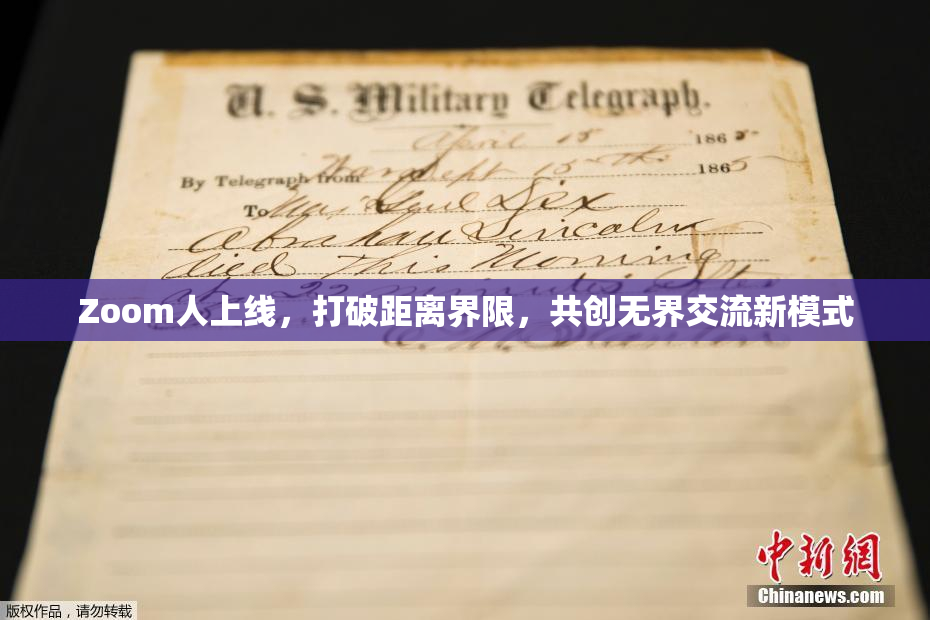 U. S. Military Telegraph.
April 15 1865
By Telegraph from War Dept 15th 1865
To Maj Genl Dix
Abraham Lincoln
died This Morning
22 minutes after
Zoom人上线，打破距离界限，共创无界交流新模式
中新網
Chinanews.com
版权作品，请勿转载